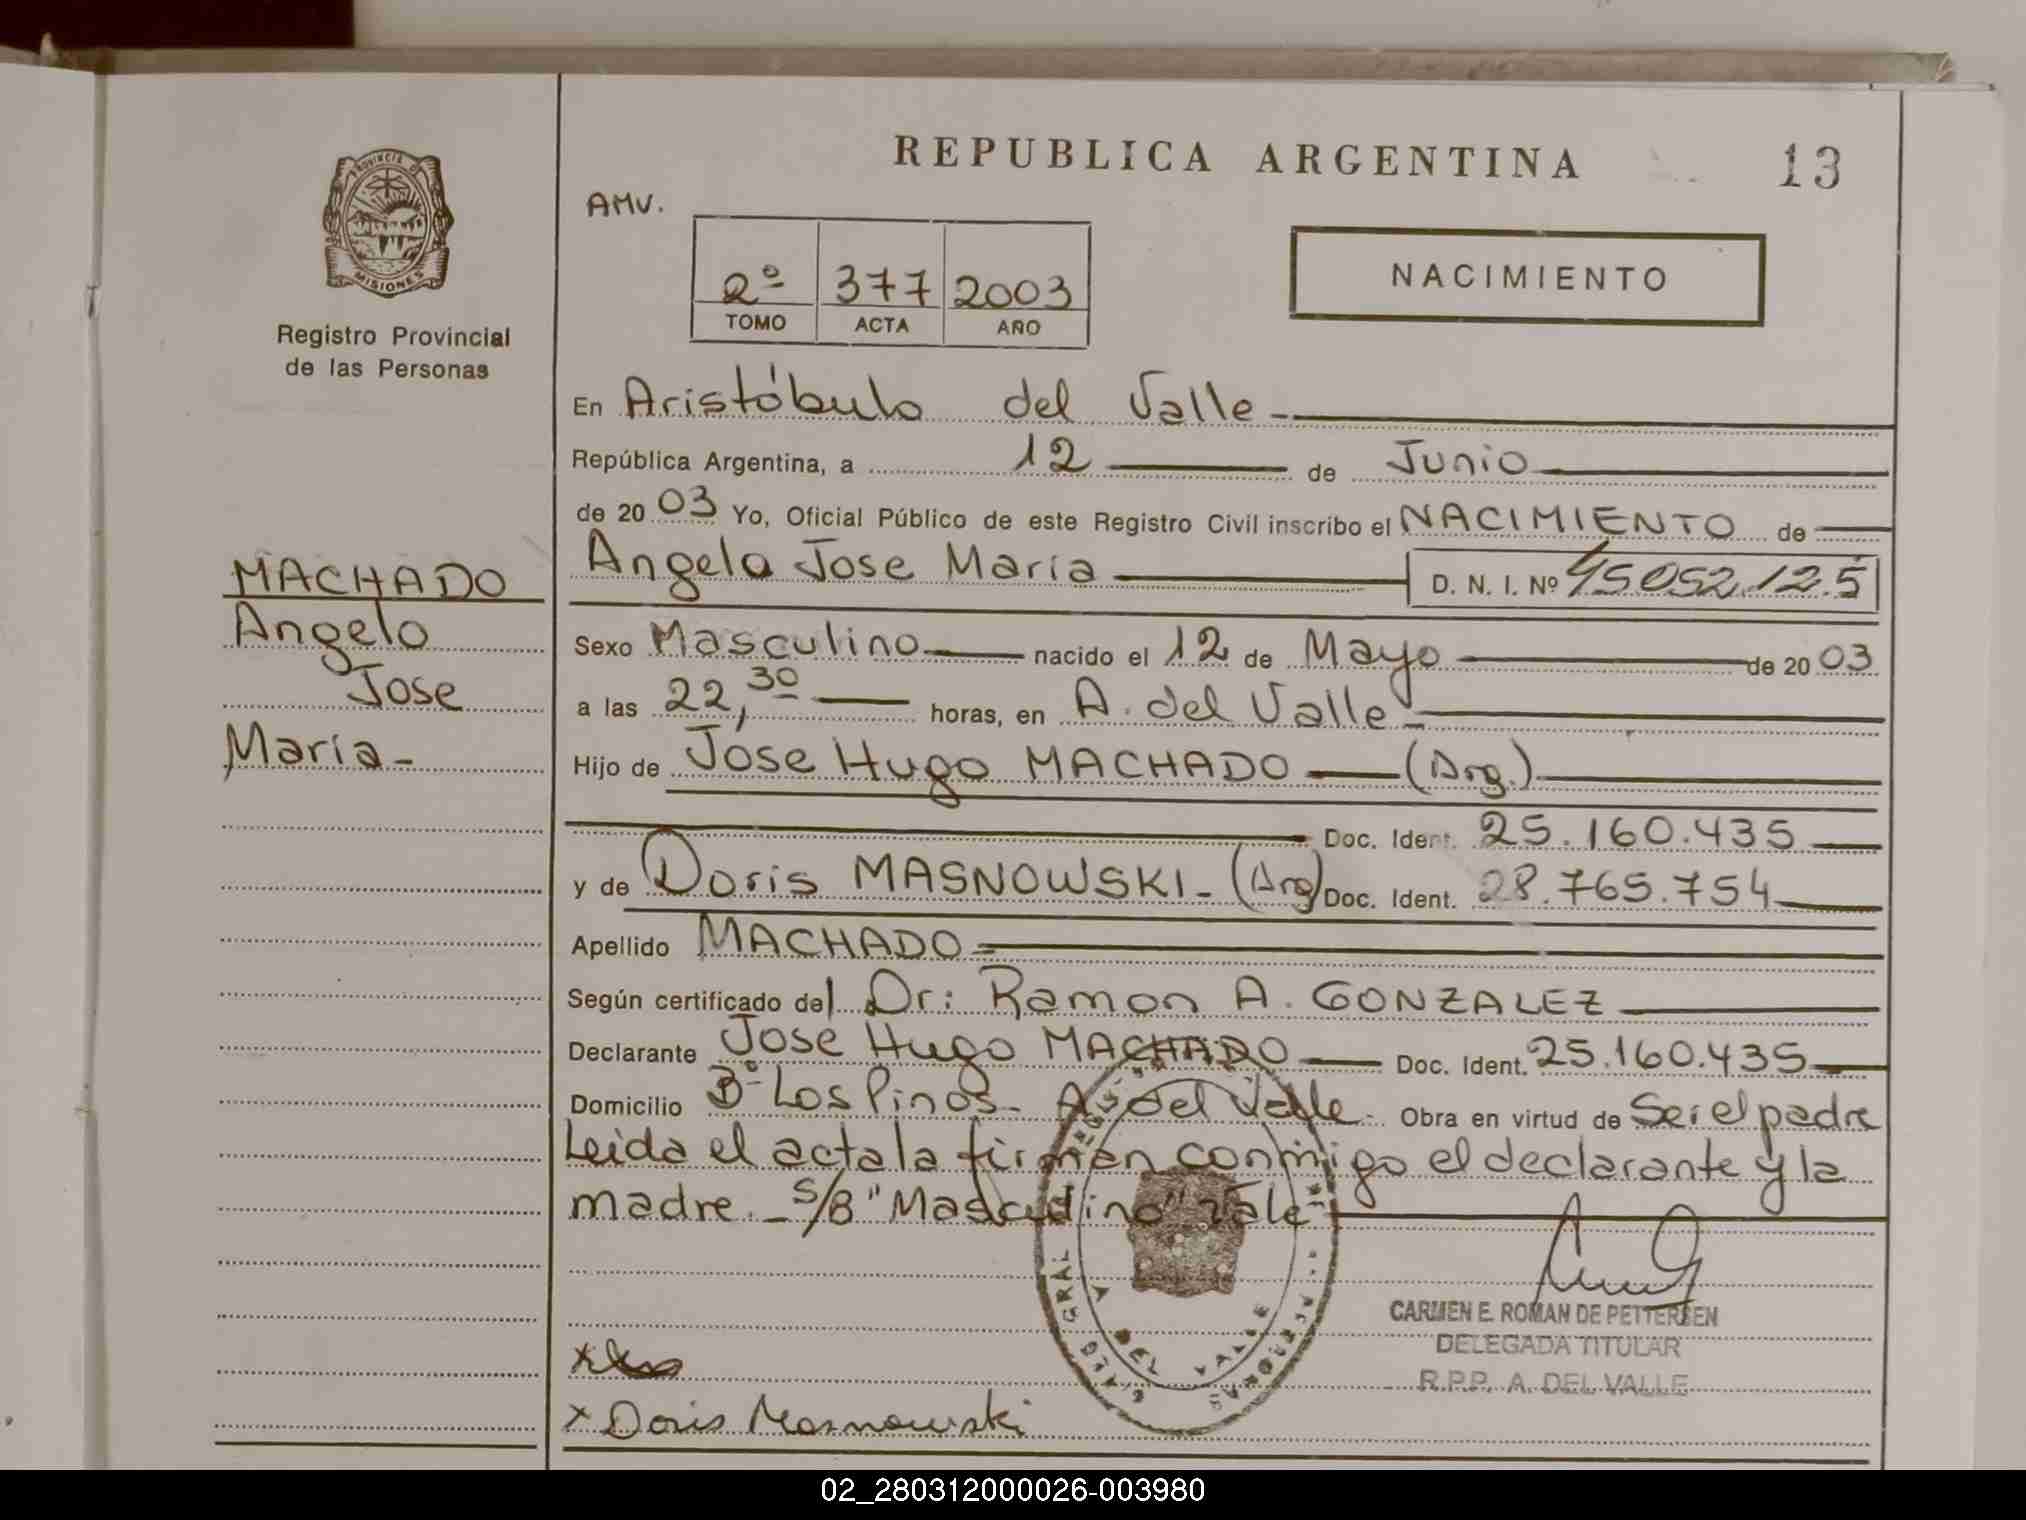 REPUBLICA ARGENTINA
13
PROVINCIA DE
MISIONES
Registro Provincial
de las Personas
AMV.
2º 377 2003
TOMO ACTA AÑO
NACIMIENTO
MACHADO
Angelo
Jose
María-
En Aristóbulo del Valle
República Argentina, a 12 de Junio
de 2003 Yo, Oficial Público de este Registro Civil inscribo el NACIMIENTO de
Angelo Jose María D. N. I. Nº 45.052.125
Sexo Masculino nacido el 12 de Mayo de 2003
a las 22,30 horas, en A. del Valle
Hijo de Jose Hugo MACHADO (Arg.)
Doc. Ident. 25.160.435
y de Doris MASNOWSKI- (Arg) Doc. Ident. 28.765.754
Apellido MACHADO
Según certificado del Dr: Ramon A. GONZALEZ
Declarante Jose Hugo MACHADO Doc. Ident. 25.160.435
Domicilio Bº Los Pinos- A. del Valle. Obra en virtud de Ser el padre
Leida el acta la firman conmigo el declarante y la
madre.- S/B "Masculino" Vale
GRAL
A DEL VALLE
CARMEN E. ROMAN DE PETTERSEN
DELEGADA TITULAR
R.P.P. A. DEL VALLE
x Doris Masnowski
02_280312000026-003980